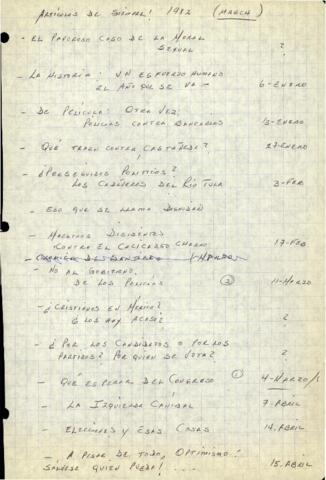 ARTÍCULOS DE SIEMPRE! 1982 (MARCH)
- EL PAVOROSO CASO DE LA MORAL
SEXUAL ?
- LA HISTORIA: UN ESFUERZO HUMANO
EL AÑO QUE SE VA - 6-ENERO
- DE PELÍCULA: OTRA VEZ:
POLICÍAS CONTRA BANCARIOS 13-ENERO
- QUÉ TRAEN CONTRA CASTAÑEDA? 27-ENERO
- ¿PERSEGUIDOS POLÍTICOS?
LOS CADÁVERES DEL RÍO TULA 3-FEB
- ESO QUE SE LLAMA DIGNIDAD
- MAESTROS DISIDENTES
CONTRA EL CACICAZGO CHARRO 17-FEB
- NO AL GOBIERNO
DE LOS POLICÍAS 11-MARZO
- ¿CRISTIANOS EN MÉXICO?
¿LOS HAY ACASO? ?
- ¿POR LOS CANDIDATOS O POR LOS
PARTIDOS? POR QUIÉN SE VOTA? ?
- QUÉ ESPERAR DEL CONGRESO 4-MARZO
- LA IZQUIERDA CANÍBAL 7-ABRIL
- ELECCIONES Y ESAS COSAS 14.ABRIL
- A PESAR DE TODO, OPTIMISMO!
SÁLVESE QUIEN PUEDA! .... 15.ABRIL